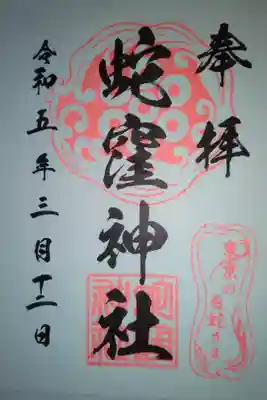 奉拝
蛇窪神社
東京の
白蛇さま
令和五年三月十二日